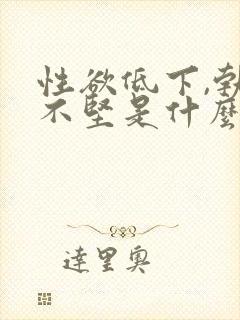 性欲低下,勃
不坚是什麼
達里奧